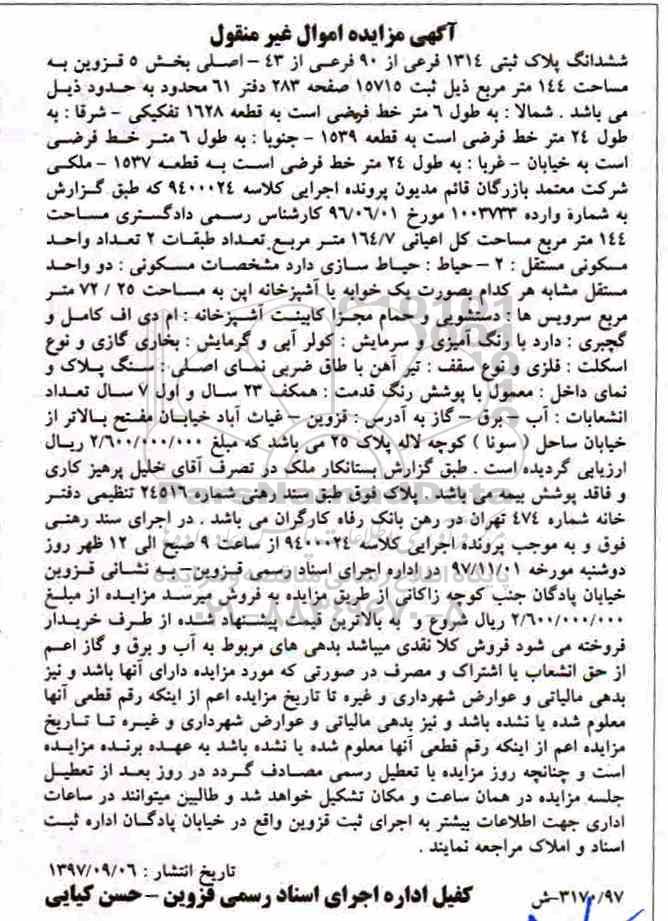 آگهی مزایده اموال غیر منقول
ششدانگ پلاک ثبتی ۱۳۱۴ فرعی از ۹۰ فرعی از ۴۳ - اصلی بخش ۵ قزوین به
مساحت ۱۴۴ متر مربع ذیل ثبت ۱۵۷۱۵ صفحه ۲۸۳ دفتر ۶۱ محدود به حدود ذیل
می باشد . شمالا : به طول ۶ متر خط فرضی است به قطعه ۱۶۲۸ تفکیکی - شرقا : به
طول ۲۴ متر خط فرضی است به قطعه ۱۵۳۹ - جنوبا : به طول ۶ متر خط فرضی
است به خیابان - غربا : به طول ۲۴ متر خط فرضی است به قطعه ۱۵۳۷ - ملکی
شرکت معتمد بازرگان قائم مدیون پرونده اجرایی کلاسه ۹۴۰۰۰۲۴ که طبق گزارش
به شماره وارده ۱۰۰۳۷۳۳ مورخ ۹۶/۰۶/۰۱ کارشناس رسمی دادگستری مساحت
۱۴۴ متر مربع مساحت کل اعیانی ۱۶۴/۷ متر مربع تعداد طبقات ۲ تعداد واحد
مسکونی مستقل : ۲ - حیاط : حیاط سازی دارد مشخصات مسکونی : دو واحد
مستقل مشابه هر کدام بصورت یک خوابه با آشپزخانه اپن به مساحت ۷۲ / ۲۵ متر
مربع سرویس ها : دستشویی و حمام مجزا کابینت آشپزخانه : ام دی اف کامل و
گچبری : دارد با رنگ آمیزی و سرمایش : کولر آبی و گرمایش : بخاری گازی و نوع
اسکلت : فلزی و نوع سقف : تیر آهن با طاق ضربی نمای اصلی : سنگ پلاک و
نمای داخل : معمول با پوشش رنگ قدمت : همکف ۲۳ سال و اول ۷ سال تعداد
انشعابات : آب - برق - گاز به آدرس : قزوین - غیاث آباد خیابان مفتح بالاتر از
خیابان ساحل ( سونا ) کوچه لاله پلاک ۲۵ می باشد که مبلغ ۲/۶۰۰/۰۰۰/۰۰۰ ریال
ارزیابی گردیده است . طبق گزارش بستانکار ملک در تصرف آقای خلیل پرهیز کاری
و فاقد پوشش بیمه می باشد . پلاک فوق طبق سند رهنی شماره ۲۴۵۱۶ تنظیمی دفتر
خانه شماره ۴۷۴ تهران در رهن بانک رفاه کارگران می باشد . در اجرای سند رهنی
فوق و به موجب پرونده اجرایی کلاسه ۹۴۰۰۰۲۴ از ساعت ۹ صبح الی ۱۲ ظهر روز
دوشنبه مورخه ۹۷/۱۱/۰۱ در اداره اجرای اسناد رسمی قزوین - به نشانی قزوین
خیابان پادگان جنب کوچه زاکانی از طریق مزایده به فروش میرسد مزایده از مبلغ
۲/۶۰۰/۰۰۰/۰۰۰ ریال شروع و به بالاترین قیمت پیشنهاد شده از طرف خریدار
فروخته می شود فروش کلا نقدی میباشد بدهی های مربوط به آب و برق و گاز اعم
از حق انشعاب یا اشتراک و مصرف در صورتی که مورد مزایده دارای آنها باشد و نیز
بدهی مالیاتی و عوارض شهرداری و غیره تا تاریخ مزایده اعم از اینکه رقم قطعی آنها
معلوم شده یا نشده باشد و نیز بدهی مالیاتی و عوارض شهرداری و غیره تا تاریخ
مزایده اعم از اینکه رقم قطعی آنها معلوم شده یا نشده باشد به عهده برنده مزایده
است و چنانچه روز مزایده با تعطیل رسمی مصادف گردد در روز بعد از تعطیل
جلسه مزایده در همان ساعت و مکان تشکیل خواهد شد و طالبین میتوانند در ساعات
اداری جهت اطلاعات بیشتر به اجرای ثبت قزوین واقع در خیابان پادگان اداره ثبت
اسناد و املاک مراجعه نمایند .
تاریخ انتشار : ۱۳۹۷/۰۹/۰۶
۳۱۷۰/۹۷-ش کفیل اداره اجرای اسناد رسمی قزوین - حسن کیایی
ParsNamadData
پایگاه اطلاع رسانی مناقصه و مزایده
۰۲۱-۸۸۳۴۹۶۷۰-۵